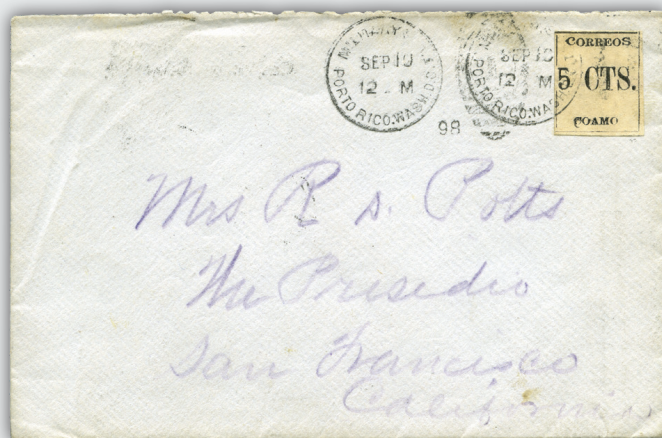 MILITARY STA.
SEP 19
12 M
PORTO RICO. WASH. D.C.
98
SEP 19
12 M
PORTO RICO. WASH
CORREOS
5 CTS.
COAMO
Mrs R. S. Potts
The Presidio
San Francisco
California